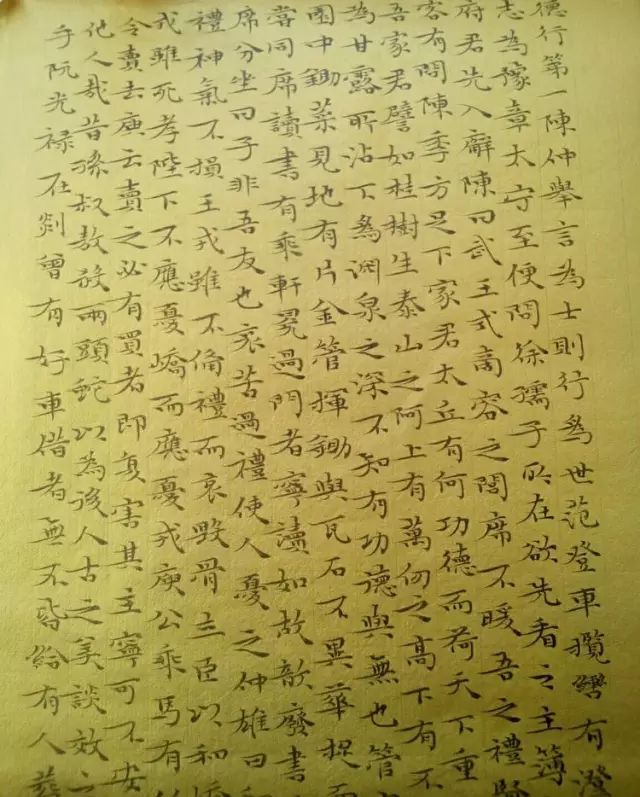 德行第一陳仲舉言為士則行為世范登車攬轡有澄
志為豫章太守至便問徐孺子所在欲先看之主簿
府君先入廨陳曰武王式商容之閭席不暇暖吾之禮賢
客有問陳季方足下家君太丘有何功德而荷天下重
吾家君譬如桂樹生泰山之阿上有萬仞之高下有不
為甘露所沾下為淵泉之深不知有功德與無也管
園中鋤菜見地有片金管揮鋤與瓦石不異華捉而
嘗同席讀書有乘軒冕過門者寧讀如故歆廢書
席分坐曰子非吾友也哀苦過禮使人憂之仲雄曰和
禮神氣不損王戎雖不備禮而哀毀骨立臣以和嶠
戎雖死孝陛下不應憂嶠而應憂戎庾公乘馬有
令賣去庾云賣之必有買者即复害其主寧可不安
他人哉昔孫叔敖殺兩頭蛇以為後人古之美談效之
手阮光祿在剡曾有好車借者無不皆給有人葬